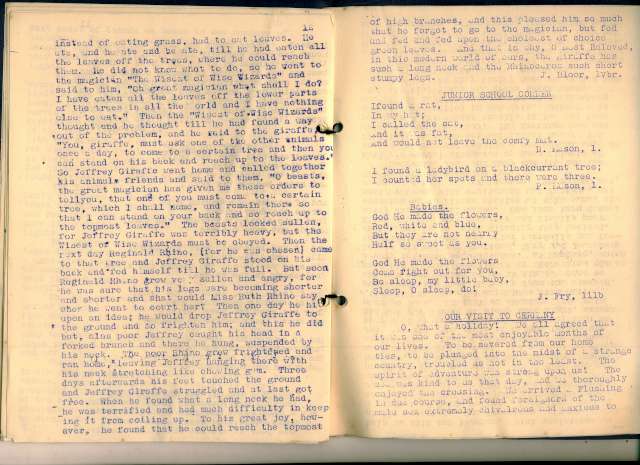 12
instead of eating grass, had to eat leaves. He
ate, and he ate and he ate, till he had eaten all
the leaves off the trees, where he could reach
them. He did not know what to do, so he went to
the magician "The Wisest of Wise Wizards" and
said to him, "Oh great magician what shall I do?
I have eaten all the leaves off the lower parts
of the trees in all the World and I have nothing
else to eat." Then the "Wisest of Wise Wizards"
thought and he thought till he had found a way
out of the problem, and he said to the giraffe,
"You, giraffe, must ask one of the other animals
once a day, to come to a certain tree and then you
can stand on his back and reach up to the leaves."
So Jeffrey Giraffe went home and called together
his animal friends and said to them, "O beasts,
the great magician has given me these orders to
tellyou, that one of you must come to a certain
tree, which I shall name, and remain there so
that I can stand on your back and so reach up to
the topmost leaves." The beasts looked sullen,
for Jeffrey Giraffe was terribly heavy, but the
Wisest of Wise Wizards must be obeyed. Then the
next day Reginald Rhino, (for he was chosen) came
to that tree and Jeffrey Giraffe stood on his
back and fed himself till he was full. But soon
Reginald Rhino grew very sullen and angry, for
he was sure that his legs were becoming shorter
and shorter and what would Miss Ruth Rhino say
when he went to court her? Then one day he hit
upon an idea; he would drop Jeffrey Giraffe to
the ground and so frighten him; and this he did
but, alas poor Jeffrey caught his head in a
forked branch and there he hung, suspended by
his neck. The poor Rhino grew frightened and
ran home, leaving Jeffrey hanging there with
his neck stretching like chewing gum. Three
days afterwards his feet touched the ground
and Jeffrey Giraffe struggled and at last got
free. When he found what a long neck he had,
he was terrified and had much difficulty in keep
ing it from coiling up. To his great joy, how-
ever, he found that he could reach the topmost
of high branches, and this pleased him so much
that he forgot to go to the magician, but fed
and fed and fed upon the choicest of choice
green leaves. And that is why, O Best Beloved,
in this modern world of ours, the Giraffe has
such a long neck and the Rhinoceros such short
stumpy legs. J. Bloor, lvbr.
JUNIOR SCHOOL CORNER
Ifound a rat,
In my hat;
I called the cat,
And it was fat,
And would not leave the comfy mat.
I found a ladybird on a blackcurrant tree;
I counted her spots and there were three.
Babies.
God He made the flowers,
Red, white and blue,
But they are not nearly
Half so sweet as you.
God He made the flowers
Come right out for you,
So sleep, my little baby,
Sleep, O sleep, do!
J. Fry, 111b
OUR VISIT TO GERMANY
O, what a holiday! We all agreed that
it was one of the most enjoyable months of
our lives. To be severed from our home
ties, to be plunged into the midst of a strange
country, troubled us not in the least. The
spirit of adventure was strong upon us! The
sea was kind to us that day, and we thoroughly
enjoyed the crossing. We arrived at Flushing
in due course, and found foreigners of the
male sex extremely chivalrous and anxious to